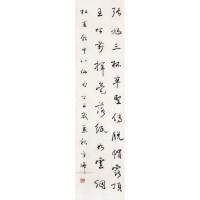 張旭三杯草聖傳脫帽露頂
王公前揮毫落紙如雲烟
杜甫飲中八仙句丁亥歲孟秋